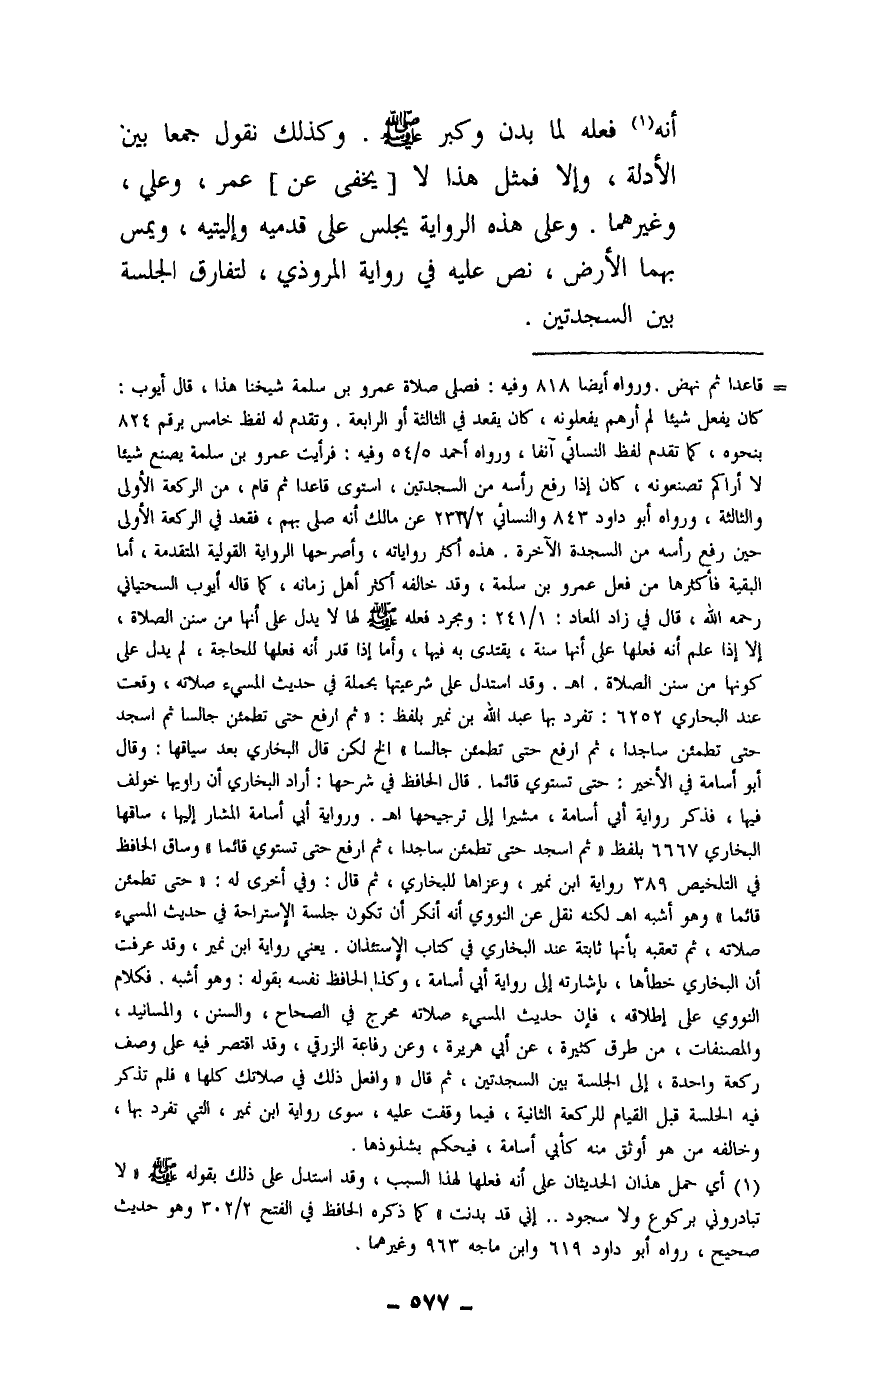 أنه(١) فعله لما بدن وكبر ﷺ . وكذلك نقول جمعا بين
الأدلة ، وإلا فمثل هذا لا [ يخفى عن ] عمر ، وعلي ،
وغيرهما . وعلى هذه الرواية يجلس على قدميه وإليتيه ، ويمس
بهما الأرض ، نص عليه في رواية المروذي ، لتفارق الجلسة
بين السجدتين .
= قاعدا ثم نهض . ورواه أيضا ٨١٨ وفيه : فصلى صلاة عمرو بن سلمة شيخنا هذا ، قال أيوب :
كان يفعل شيئا لم أرهم يفعلونه ، كان يقعد في الثالثة أو الرابعة . وتقدم له لفظ خامس برقم ٨٢٤
بنحوه ، كما تقدم لفظ النسائي آنفا ، ورواه أحمد ٥٤/٥ وفيه : فرأيت عمرو بن سلمة يصنع شيئا
لا أراكم تصنعونه ، كان إذا رفع رأسه من السجدتين ، استوى قاعدا ثم قام ، من الركعة الأولى
والثالثة ، ورواه أبو داود ٨٤٣ والنسائي عن مالك أنه صلى بهم ، فقعد في الركعة الأولى
حين رفع رأسه من السجدة الآخرة . هذه أكثر رواياته ، وأصرحها الرواية القولية المتقدمة ، أما
البقية فأكثرها من فعل عمرو بن سلمة ، وقد خالفه أكثر أهل زمانه ، كما قاله أيوب السحتياني
رحمه الله ، قال في زاد المعاد : ٢٤١/١ : ومجرد فعله ﷺ لها لا يدل على أنها من سنن الصلاة ،
إلا إذا علم أنه فعلها على أنها سنة ، يقتدى به فيها ، وأما إذا قدر أنه فعلها للحاجة ، لم يدل على
كونها من سنن الصلاة . اهـ . وقد استدل على شرعيتها بحملة في حديث المسيء صلاته ، وقعت
عند البحاري ٦٢٥٢ : تفرد بها عبد الله بن نمير بلفظ : « ثم ارفع حتى تطمئن جالسا ثم اسجد
حتى تطمئن ساجدا ، ثم ارفع حتى تطمئن جالسا » الخ لكن قال البخاري بعد سياقها : وقال
أبو أسامة في الأخير : حتى تستوي قائما . قال الحافظ في شرحها : أراد البخاري أن راويها خولف
فيها ، فذكر رواية أبي أسامة ، مشيرا إلى ترجيحها اهـ . ورواية أبي أسامة المشار إليها ، ساقها
البخاري ٦٦٦٧ بلفظ « ثم اسجد حتى تطمئن ساجدا ، ثم ارفع حتى تستوي قائما » وساق الحافظ
في التلخيص ٣٨٩ رواية ابن نمير ، وعزاها للبخاري ، ثم قال : وفي أخرى له : « حتى تطمئن
قائما » وهو أشبه اهـ لكنه نقل عن النووي أنه أنكر أن تكون جلسة الإستراحة في حديث المسيء
صلاته ، ثم تعقبه بأنها ثابتة عند البخاري في كتاب الإستئذان . يعني رواية ابن نمير ، وقد عرفت
أن البخاري خطأها ، بإشارته إلى رواية أبي أسامة ، وكذا الحافظ نفسه بقوله : وهو أشبه . فكلام
النووي على إطلاقه ، فإن حديث المسيء صلاته مخرج في الصحاح ، والسنن ، والمسانيد ،
والمصنفات ، من طرق كثيرة ، عن أبي هريرة ، وعن رفاعة الزرقي ، وقد اقتصر فيه على وصف
ركعة واحدة ، إلى الجلسة بين السجدتين ، ثم قال « وافعل ذلك في صلاتك كلها » فلم تذكر
فيه الجلسة قبل القيام للركعة الثانية ، فيما وقفت عليه ، سوى رواية ابن نمير ، التي تفرد بها ،
وخالفه من هو أوثق منه كأبي أسامة ، فيحكم بشذوذها .
(١) أي حمل هذان الحديثان على أنه فعلها لهذا السبب ، وقد استدل على ذلك بقوله ﷺ « لا
تبادروني بركوع ولا سجود .. إني قد بدنت » كما ذكره الحافظ في الفتح ٣٠٢/٢ وهو حديث
صحيح ، رواه أبو داود ٦١٩ وابن ماجه ٩٦٣ وغيرهما .
ـ ٥٧٧ ـ